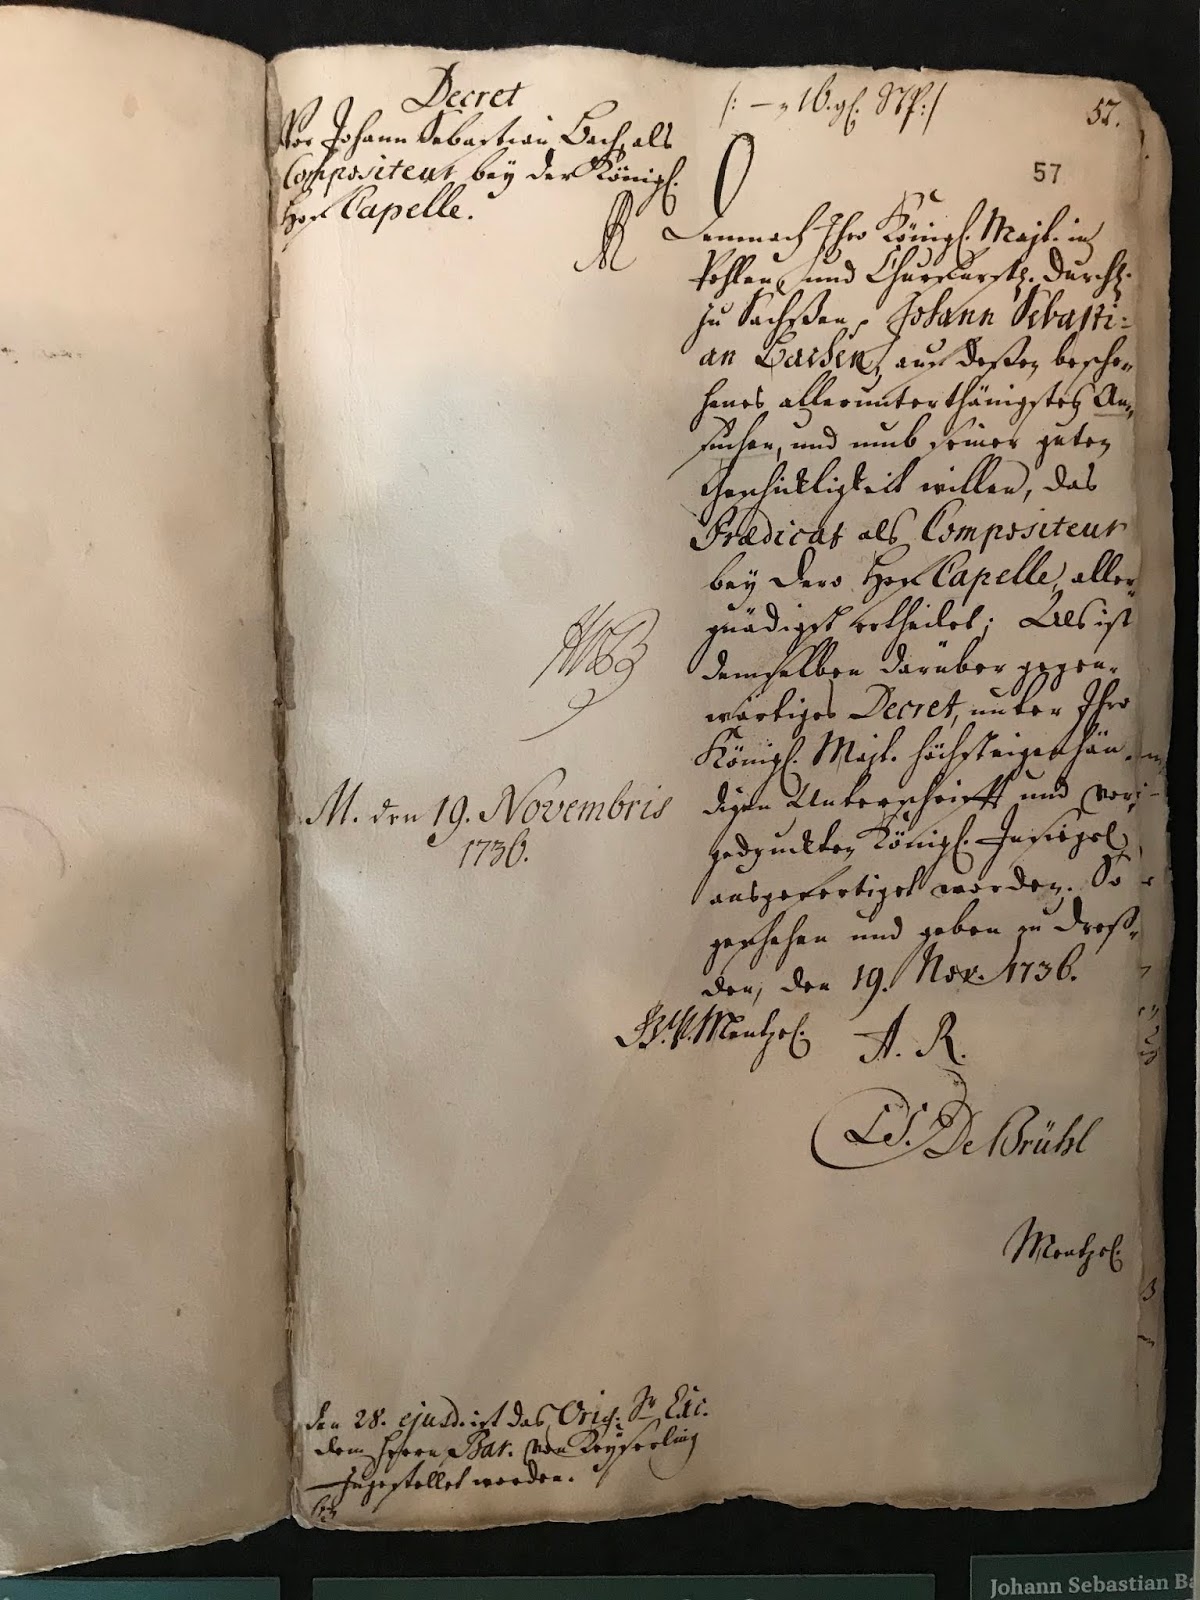 Decret
Vor Johann Sebastian Bach, als
Compositeur bey der Königl.
Hof Capelle.
/: — „ 16. gl. StP :/
57.
57
Demnach Ihro Königl. Majt. in
Pohlen, und Churfürstl. Durchl.
zu Sachßen, Johann Sebasti-
an Bachen, auf deßen besche-
henes allerunterthänigstes An-
suchen, und umb seiner guten
Geschickligkeit willen, das
Prædicat als Compositeur
bey Dero Hof Capelle, aller-
gnädigst ertheilet; Als ist
demselben darüber gegen-
wärtiges Decret, unter Ihro
Königl. Majt. höchsteigenhän-
digen Unterschrifft und vor-
gedruckten Königl. Insiegel
ausgefertiget worden. So
geschehen und geben zu Dreß-
den, den 19. Nov. 1736.
M. den 19. Novembris
1736.
Mentzel.
A. R.
De Brühl
Mentzel.
den 28. ejusd. ist das Orig. Sr. Exc.
dem Herrn Bar. von Keyserling
zugestellet worden.
Johann Sebastian Ba